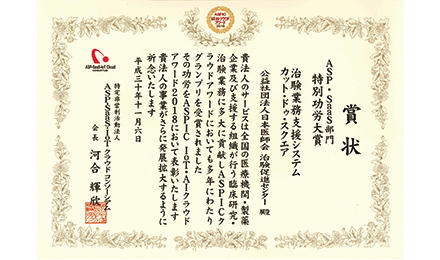 賞状
ASP・SaaS部門
特別功労大賞
治験業務支援システム
カット・ドゥ・スクエア
公益社団法人日本医師会 治験促進センター 殿
貴法人のサービスは全国の医療機関・製薬
企業及び支援する組織が行う臨床研究・
治験業務に多大に貢献しASPICク
ラウドアワードにおいても多年にわたり
グランプリを受賞されました
その功労をASPIC IoT・AIクラウド
アワード2018において表彰いたします
貴法人の事業がさらに発展拡大するように
祈念いたします
平成三十年十一月六日
特定非営利活動法人
ASP・SaaS・IoT クラウド コンソーシアム
会長 河合 輝欣
ASP-SaaS-IoT Cloud
CONSORTIUM
ASPIC